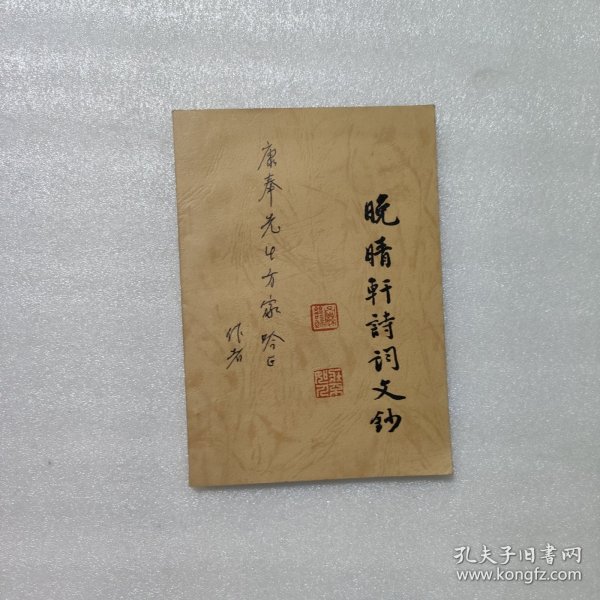 晚晴軒詩詞文鈔
康奉先生方家吟正
作者
孔夫子旧书网
www.kongfz.com